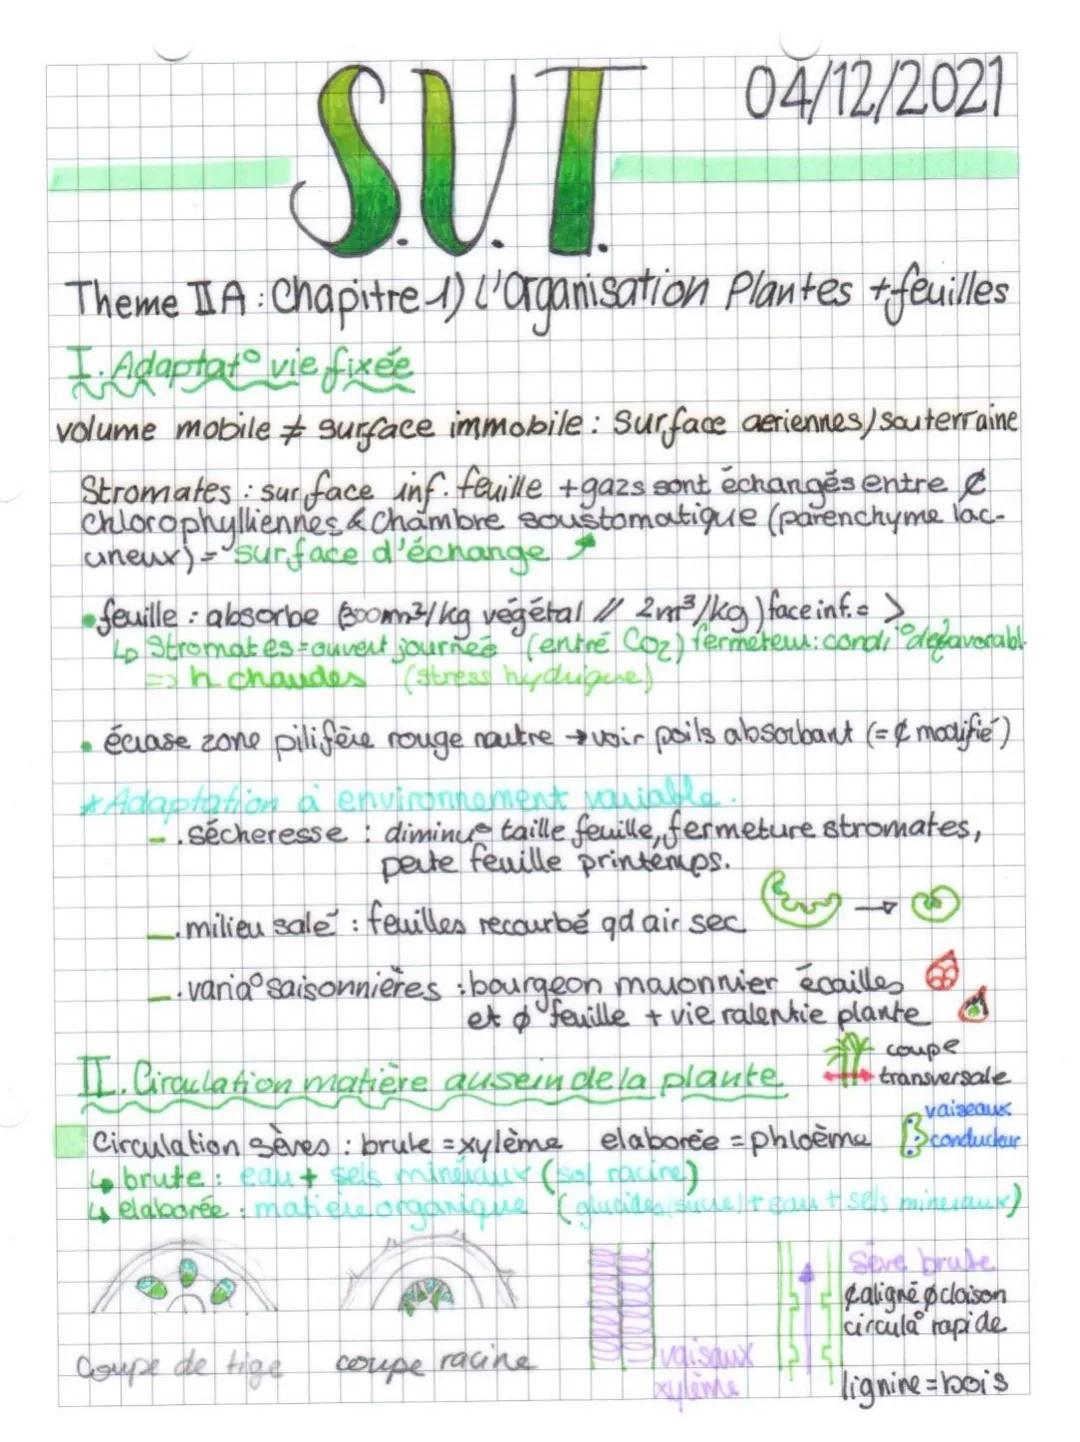 S.U.T.
04/12/2021
Theme IIA : Chapitre 1) L'Organisation Plantes + feuilles
I. Adaptat° vie fixée
volume mobile ≠ surface immobile : Surface aeriennes/souterraine
Stromates : surface inf. feuille + gazs sont échangés entre ¢
chlorophylliennes & Chambre soustomatique (parenchyme lac-
uneux) = surface d'échange
• feuille : absorbe (300mm²/kg végétal // 2m³/kg) face inf. = >
↳ Stromates = ouvert journée (entré CO2) fermeteur: condi° défavorabl.
=> h chaudes (stress hydrique)
• écrase zone pilifère rouge nautre → voir poils absorbant (= ¢ modifié)
* Adaptation à environnement variable.
– . sécheresse : diminue taille feuille, fermeture stromates,
perte feuille printemps.
– . milieu salé : feuilles recourbé qd air sec
– . varia° saisonnières : bourgeon maronnier écailles
et ø feuille + vie ralentie plante
II. Circulation matière au sein de la plante
coupe
transversale
vaiseaux
conducteur
Circulation sèves : brute = xylème elaborée = phloème
↳ brute : eau + sels minéraux (sol racine)
↳ elaborée : matière organique (glucides, sucre) + eau + sels mineraux)
Coupe de tige
coupe racine
vaisaux
xylème
Sève brute
¢ aligné ø cloison
circula° rapide
lignine = bois